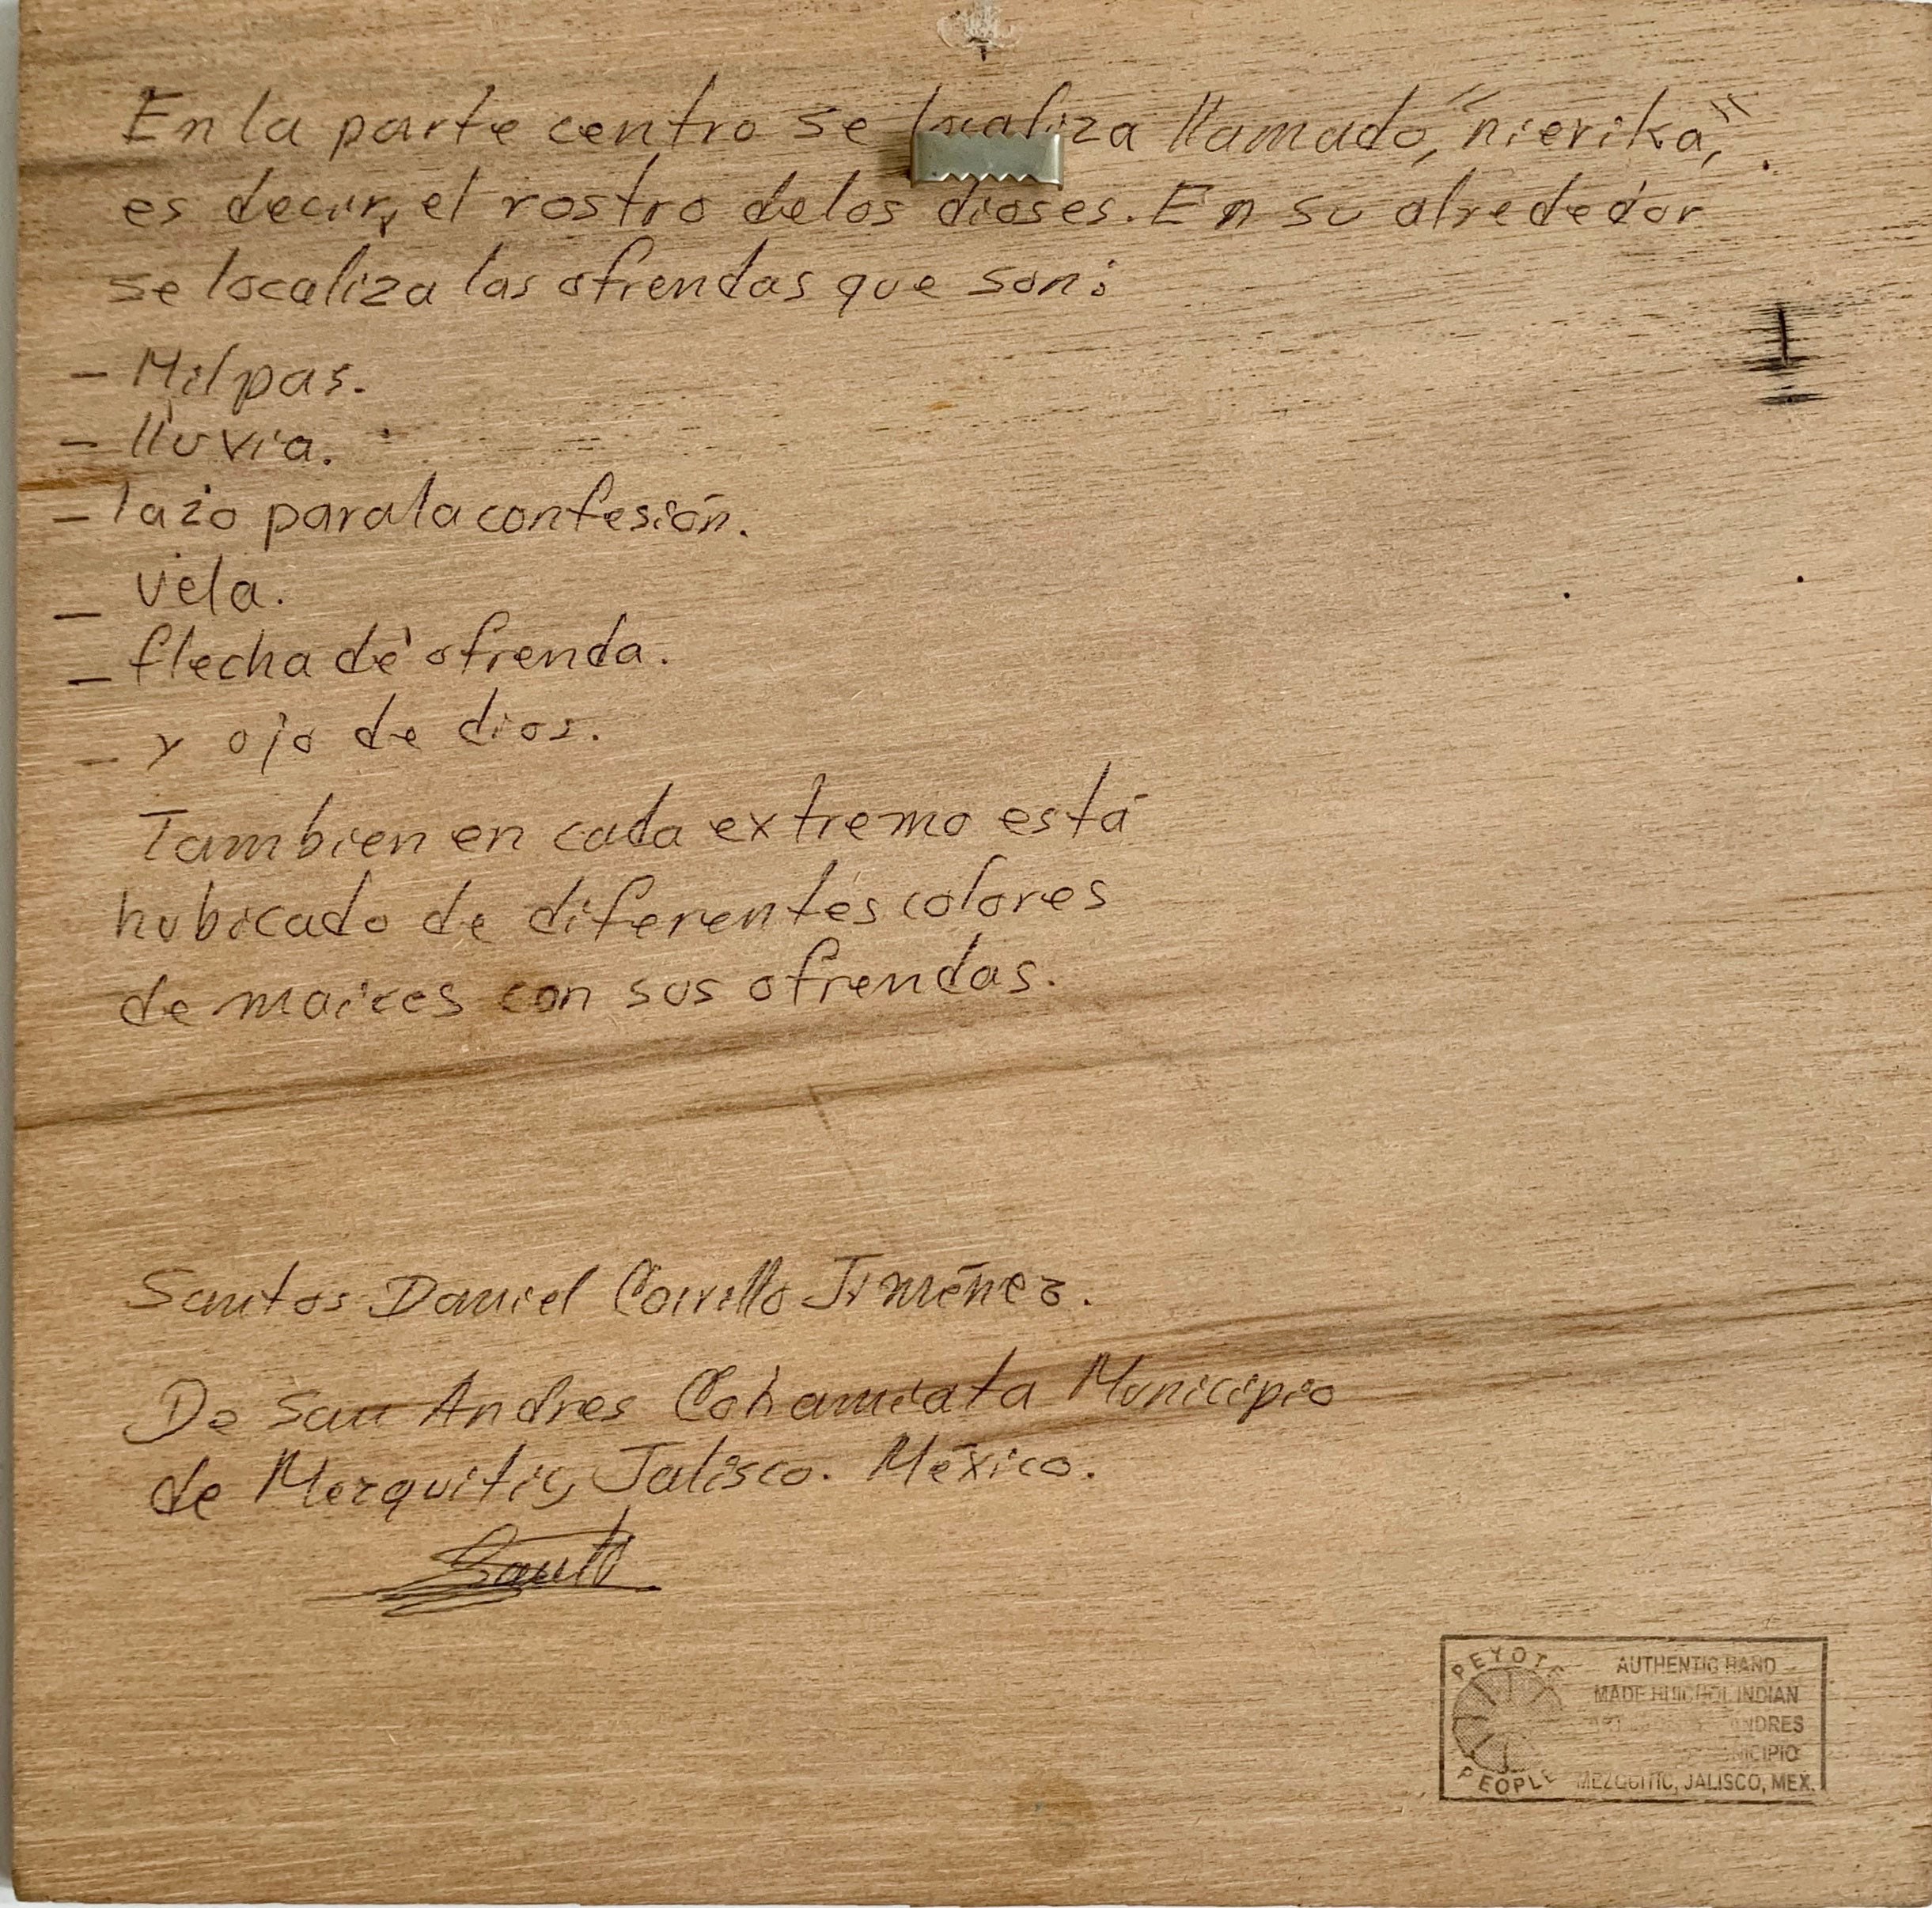 En la parte centro se localiza llamado, "nierika",.
es decir, el rostro delos dioses. En su alrededor
se localiza las ofrendas que son:
- Milpas.
- lluvia.
- lazo para la confesión.
- vela.
- flecha de ofrenda.
- y ojo de dios.
Tambien en cada extremo está
hubicado de diferentes colores
de maices con sus ofrendas.
Santos Daniel Carrillo Jiménez.
De San Andres Cohamiata Municipio
de Mezquitic, Jalisco. México.
PEYOTE
PEOPLE
AUTHENTIC HAND
MADE HUICHOL INDIAN
ART ANDRES
MUNICIPIO
MEZQUITIC, JALISCO, MEX.